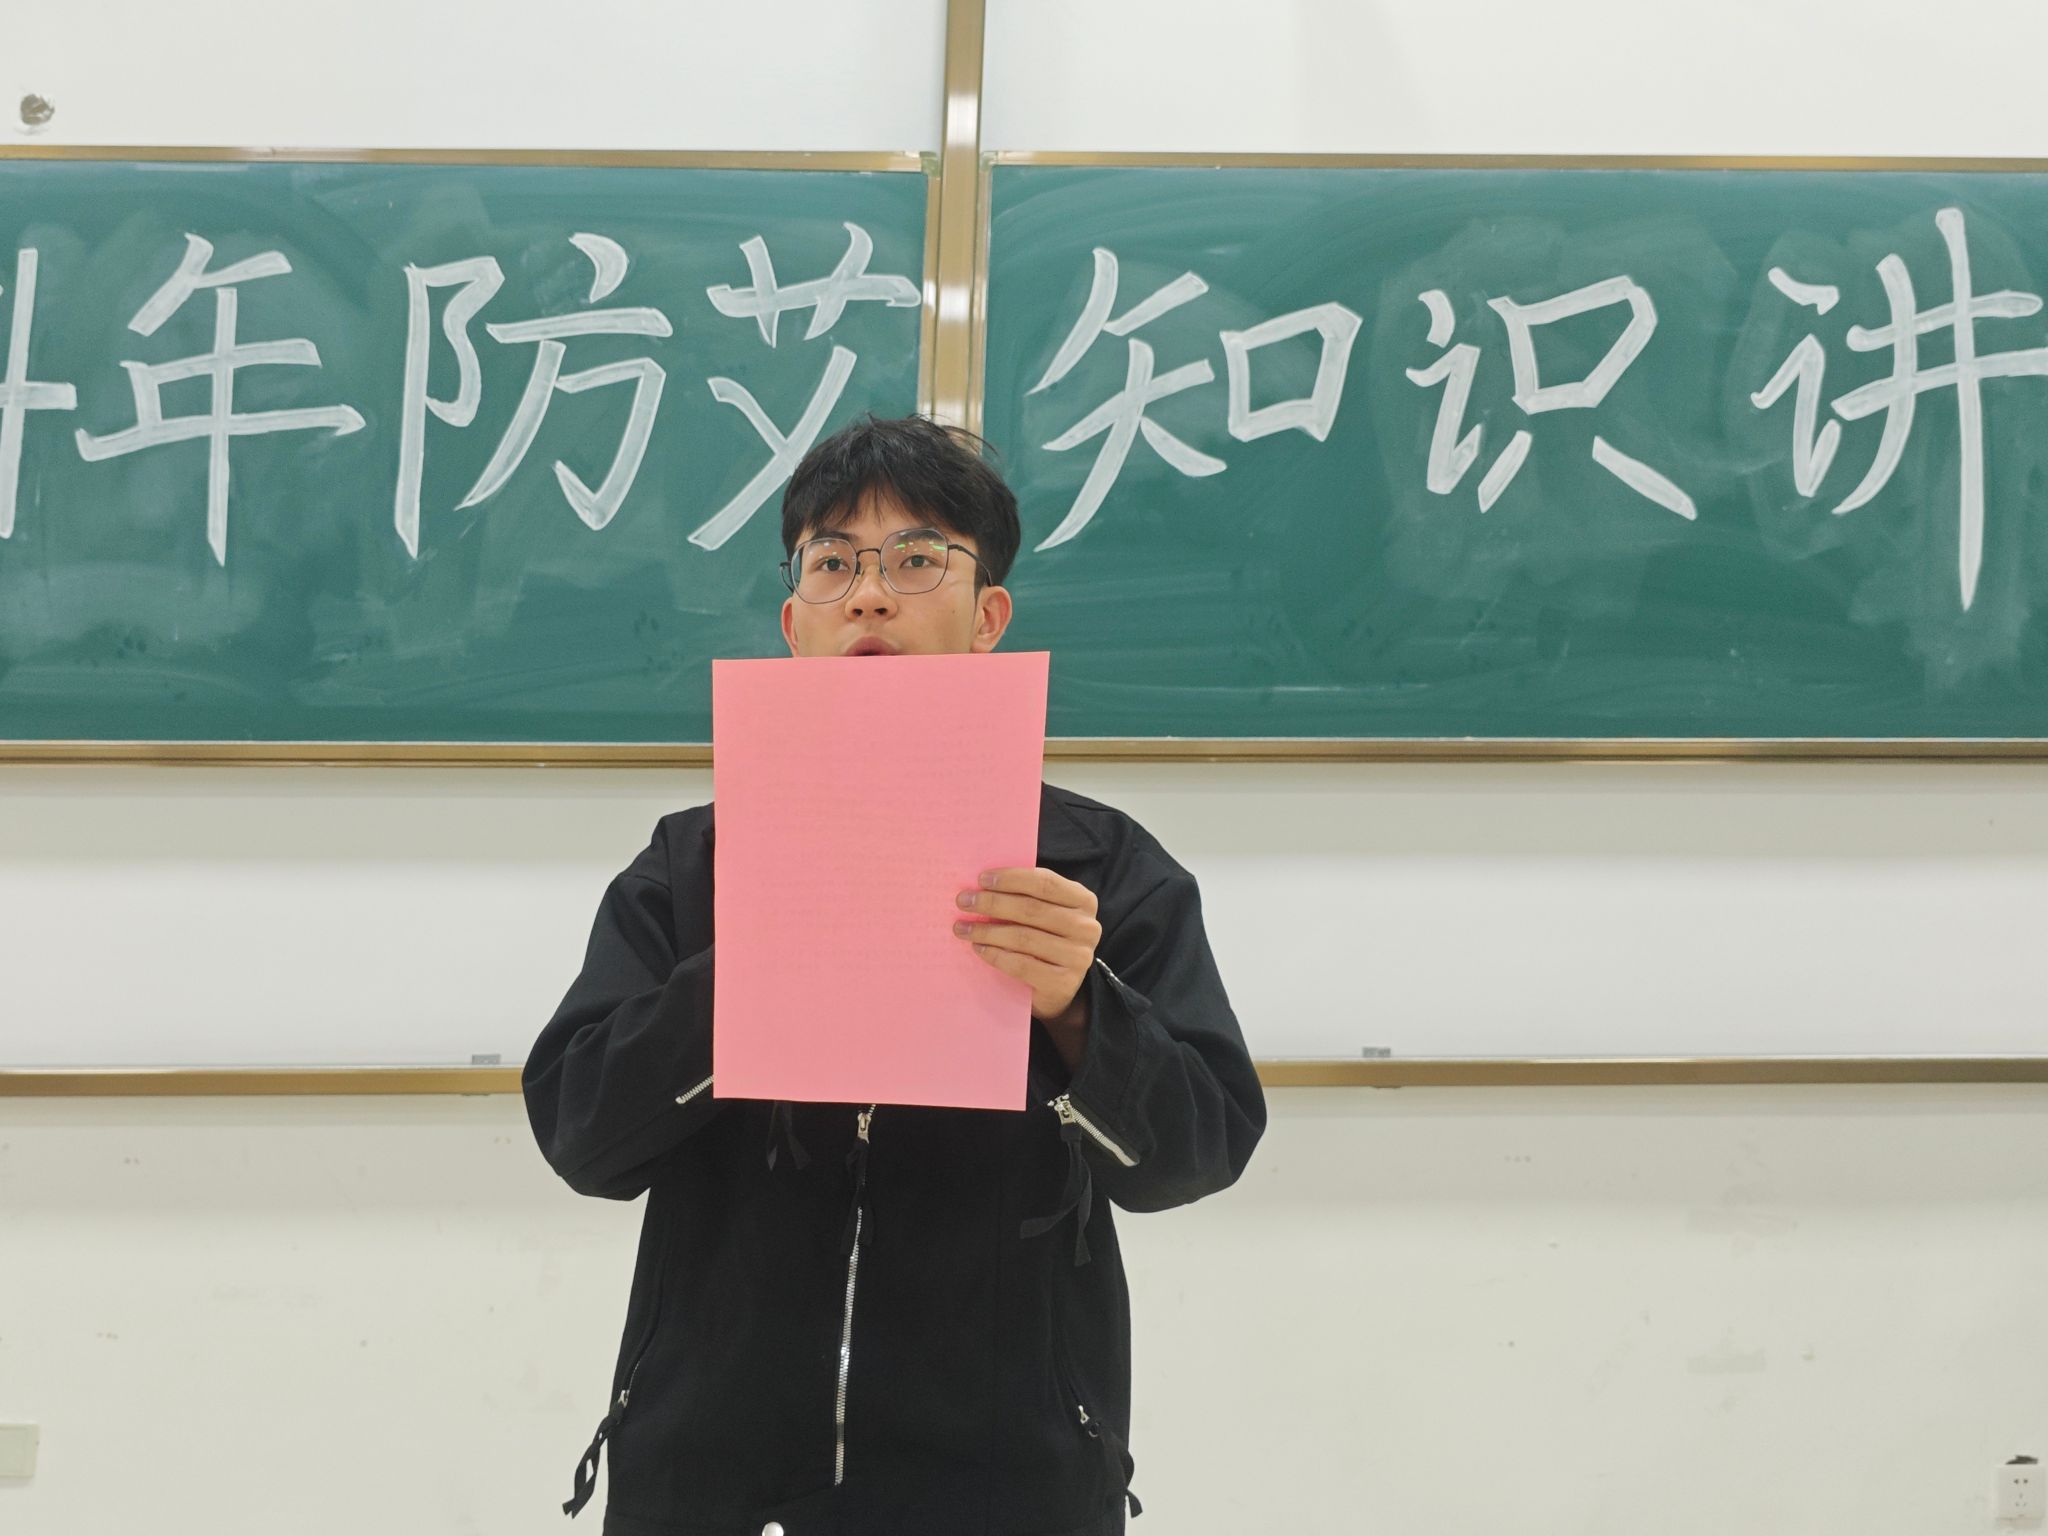 年防艾知识讲